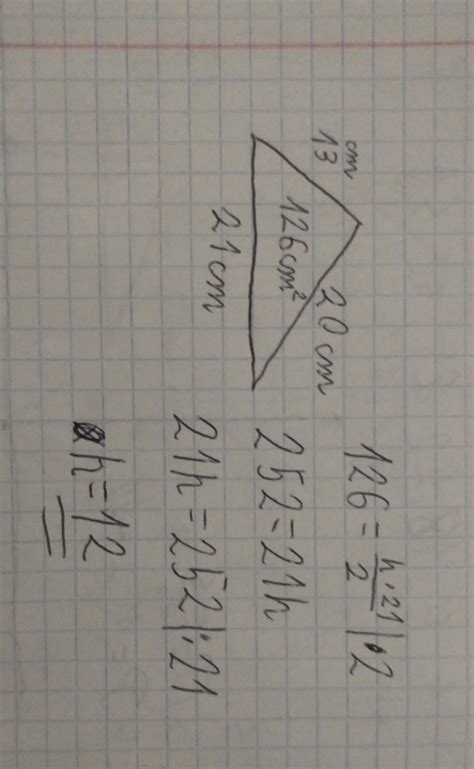 13 cm
20 cm
126cm²
21cm
126 = h·21/2 |·2
252=21h
21h=252|:21
h=12